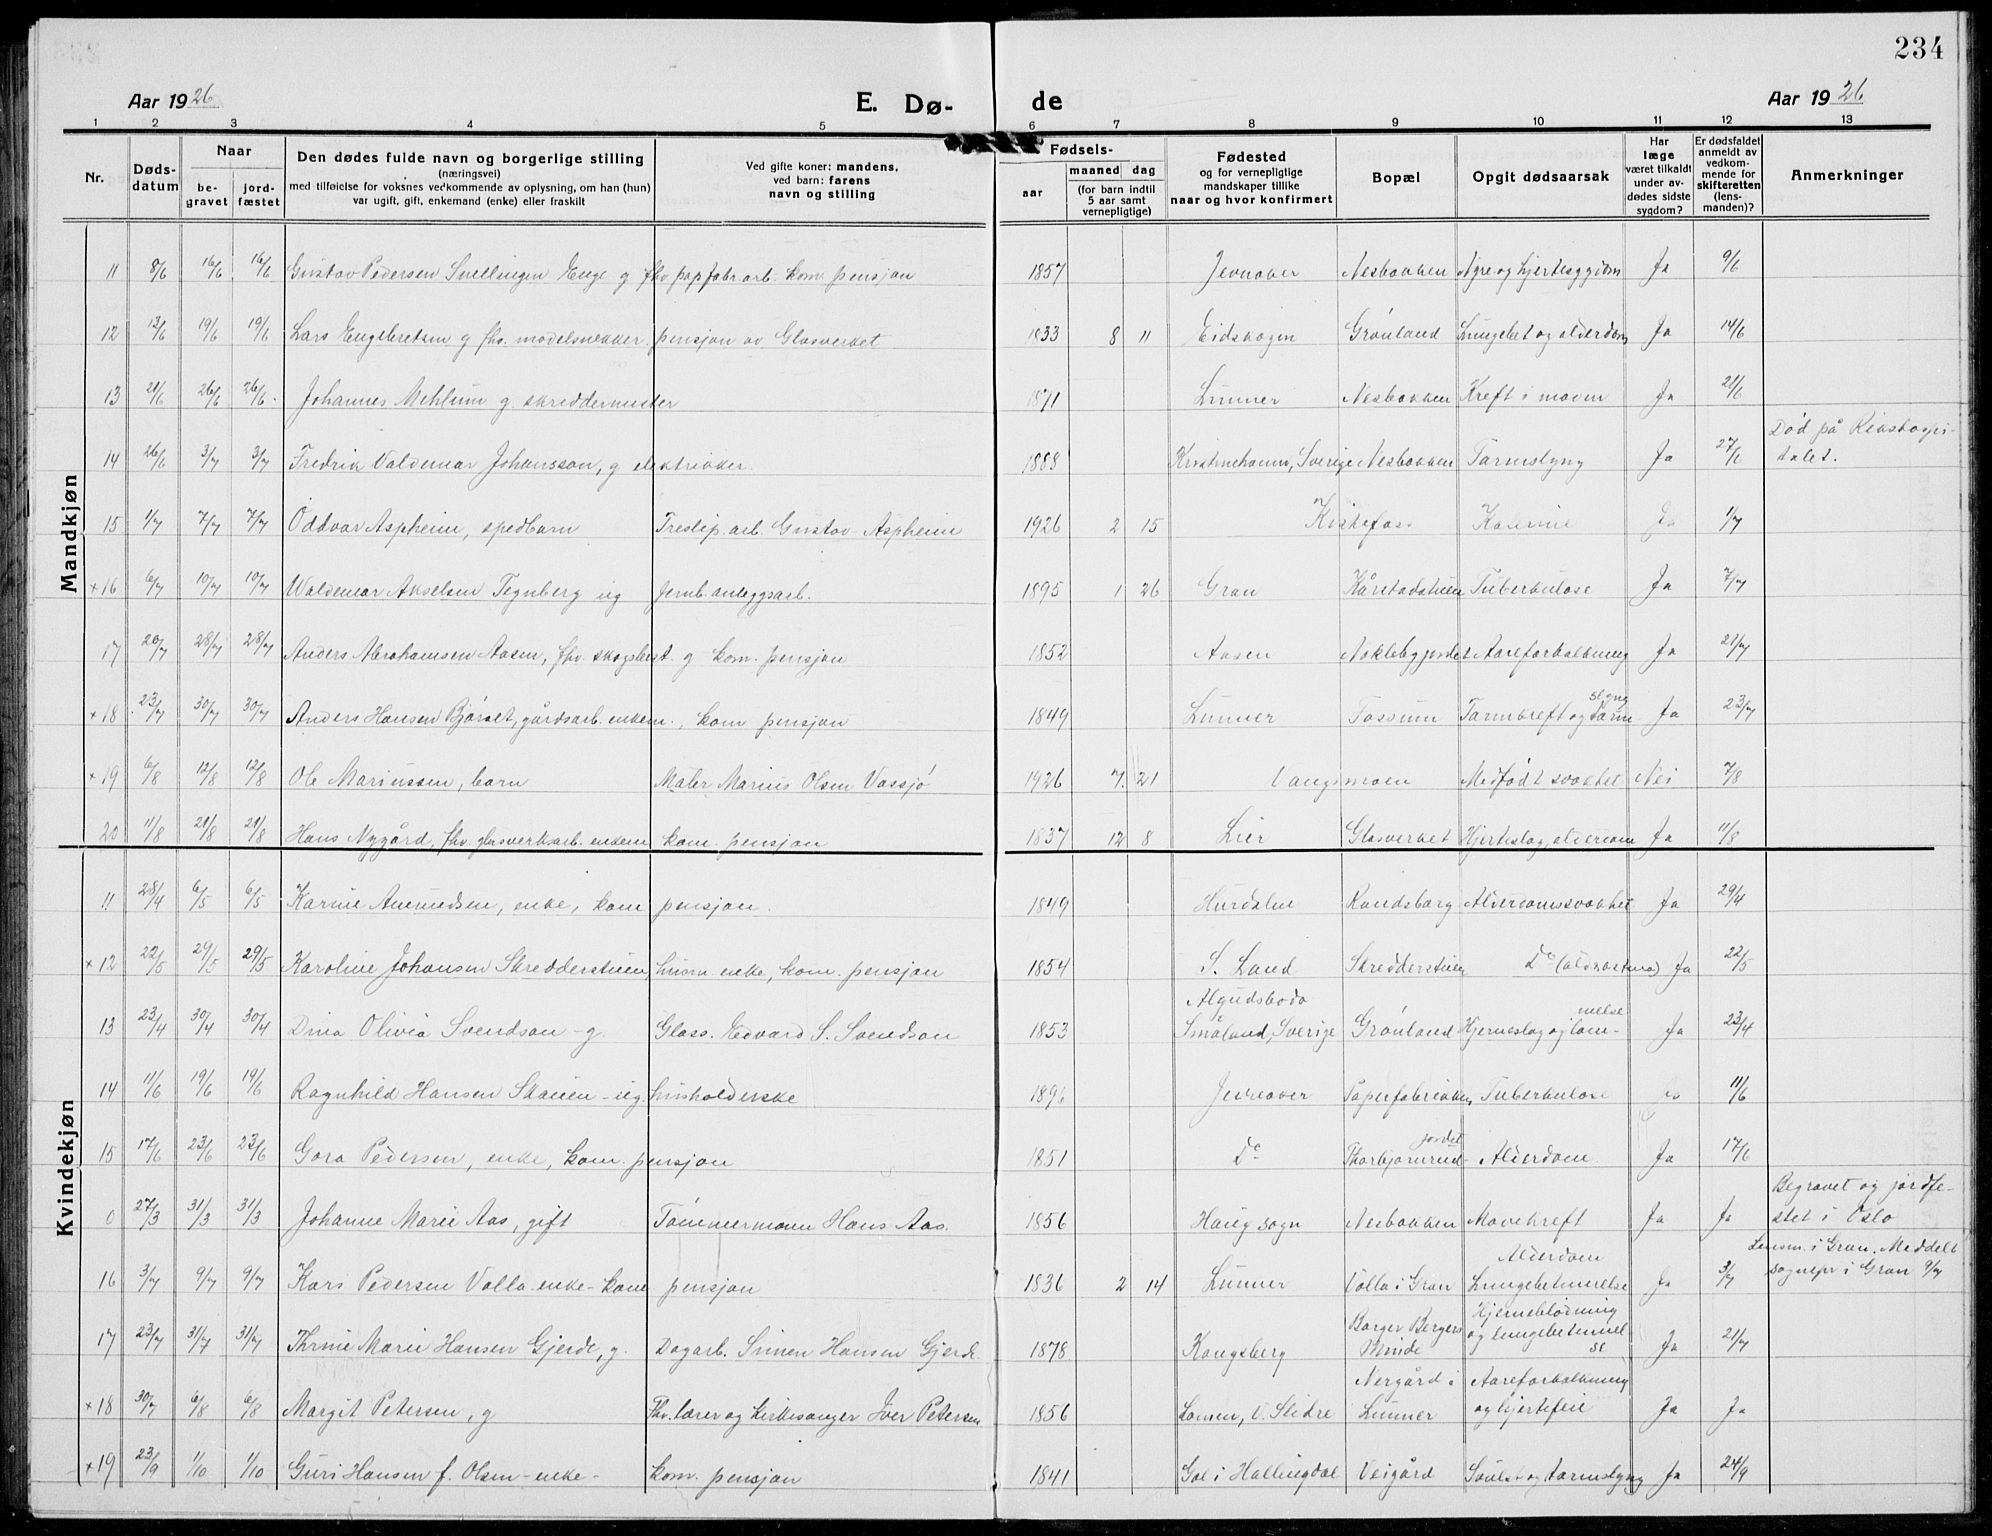 234
Aar 1926 E. Dø- de Aar 1926
1 2 3 4 5 6 7 8 9 10 11 12 13
Nr. Døds-datum Naar be-gravet jord-fæstet Den dødes fulde navn og borgerlige stilling (næringsvei) med tilføielse for voksnes vedkommende av oplysning, om han (hun) var ugift, gift, enkemand (enke) eller fraskilt Ved gifte koner: mandens, ved barn: farens navn og stilling Fødsels- aar maaned dag (for barn indtil 5 aar samt vernepligtige) Fødested og for vernepligtige mandskaper tillike naar og hvor konfirmert Bopæl Opgit dødsaarsak Har læge været tilkaldt under av-dødes sidste sygdom? Er dødsfaldet anmeldt av vedkom-mende for skifteretten (lens-manden)? Anmerkninger
Mandkjøn
11 8/6 16/6 16/6 Gustav Pedersen Snellingen Enge g fhv. papfabr.arb. kom. pensjon 1857 Jevnaker Nesbakken Nyre- og hjertesygdom Ja 9/6
12 13/6 19/6 19/6 Lars Engebretsen g fhv. modelsnekker pensjon av Glasverket 1833 8 11 Eidskogen Grønland Lungebet og alderdom Ja 14/6
13 21/6 26/6 26/6 Johannes Mehlum g. skreddermester 1871 Lunner Nesbakken Kreft i maven Ja 21/6
14 26/6 3/7 3/7 Fredrik Valdemar Johansson, g elektrikker. 1888 Kristinehamn, Sverige Nesbakken Tarmslyng Ja 27/6 Død på Rikshospi-talet.
15 1/7 7/7 7/7 Oddvar Aspheim, spedbarn Treslip.arb. Gustav Aspheim 1926 2 15 Kistefoss Kolerine Ja 1/7
×16 6/7 10/7 10/7 Waldemar Akselsen Tegnberg ug Jernb.anleggsarb. 1895 1 26 Gran Kårstadstuen Tuberkulose Ja 7/7
17 20/7 28/7 28/7 Anders Abrahamsen Aasen, fhv. skogsbest. g kom. pensjon 1852 Aasen Nøklebyjordet Aareforkalkning Ja 21/7
×18 23/7 30/7 30/7 Anders Hansen Bjørset, gårdsarb. enkem., kom pensjon 1849 Lunner Fossum Tarmkreft og Tarm-slyng Ja 23/7
×19 6/8 12/8 12/8 Ole Mariussen, barn Maler Marius Olsen Vassjø 1926 7. 21 Vangsmoen Medfødt svakhet Nei 7/8
20 11/8 21/8 21/8 Hans Nygård, fhv. glasverksarb. enkem kom. pensjon 1837 12 8 Lier Glasverket Hjerteslag, alderdom Ja 11/8
Kvindekjøn
11 28/4 6/5 6/5 Karine Amundsen, enke, kom pensjon. 1849 Hurdalen Randsborg Alderdomssvakhet Ja 29/4
×12 22/5 29/5 29/5 Karoline Johansen Skredderstuen, husm. enke, kom. pensjon 1854 S. Land Skredderstuen Do Ja 22/5
13 23/4 30/4 30/4 Dina Olivia Svendson - g Glass. Edvard S. Svendson 1853 Algudsboda Småland, Sverige Grønland Hjerneslag og lam-melse Ja 23/4
14 11/6 19/6 19/6 Ragnhild Hansen Skauen - ug husholderske 1896 Jevnaker Paperfabrikken, Tuberkulose 11/6
15 17/6 23/6 23/6 Gora Pedersen, enke, kom. pensjon 1851 Do Thorbjørnrud-jordet Alderdom Ja 17/6
0 27/3 31/3 31/3 Johanne Marie Aas, gift Tømmermann Hans Aas. 1856 Haug sogn Nesbakken Mavekreft Ja Ja Begravet og jordfe-stet i Oslo
16 3/7 9/7 9/7 Kari Pedersen Volla enke - kom pensjon 1836 2 14 Lunner Volla i Gran Alderdom Lungebetennelse Ja 3/7 Lensm. i Gran. Meddelt sognepr i Gran 9/7
17 23/7 31/7 31/7 Thrine Marie Hansen Gjerde, g. Dagarb. Simen Hansen Gjerde 1878 Kongsberg Borger Bergers Minde Hjerneblødning og lungebetennel-se Ja 21/7
×18 30/7 6/8 6/8 Margit Petersen, g Fhv. lærer og kirkesanger Iver Petersen 1856 Lomen, V. Slidre Nergård i Lunner Aareforkalkning og hjertefeil Ja Ja
×19 23/9 1/10 1/10 Guri Hansen f. Olsen - enke - kom. pensjon 1841 Gol i Hallingdal Veigård Svulst og tarmslyng Ja 24/9